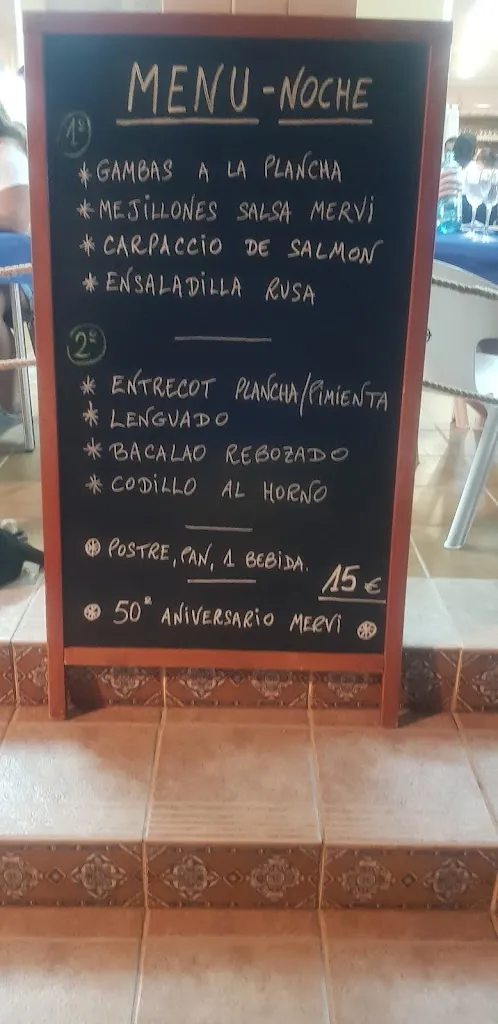 MENU - NOCHE
1º
* GAMBAS A LA PLANCHA
* MEJILLONES SALSA MERVI
* CARPACCIO DE SALMON
* ENSALADILLA RUSA
2º
* ENTRECOT PLANCHA/PIMIENTA
* LENGUADO
* BACALAO REBOZADO
* CODILLO AL HORNO
POSTRE, PAN, 1 BEBIDA.
15 €
50º ANIVERSARIO MERVI